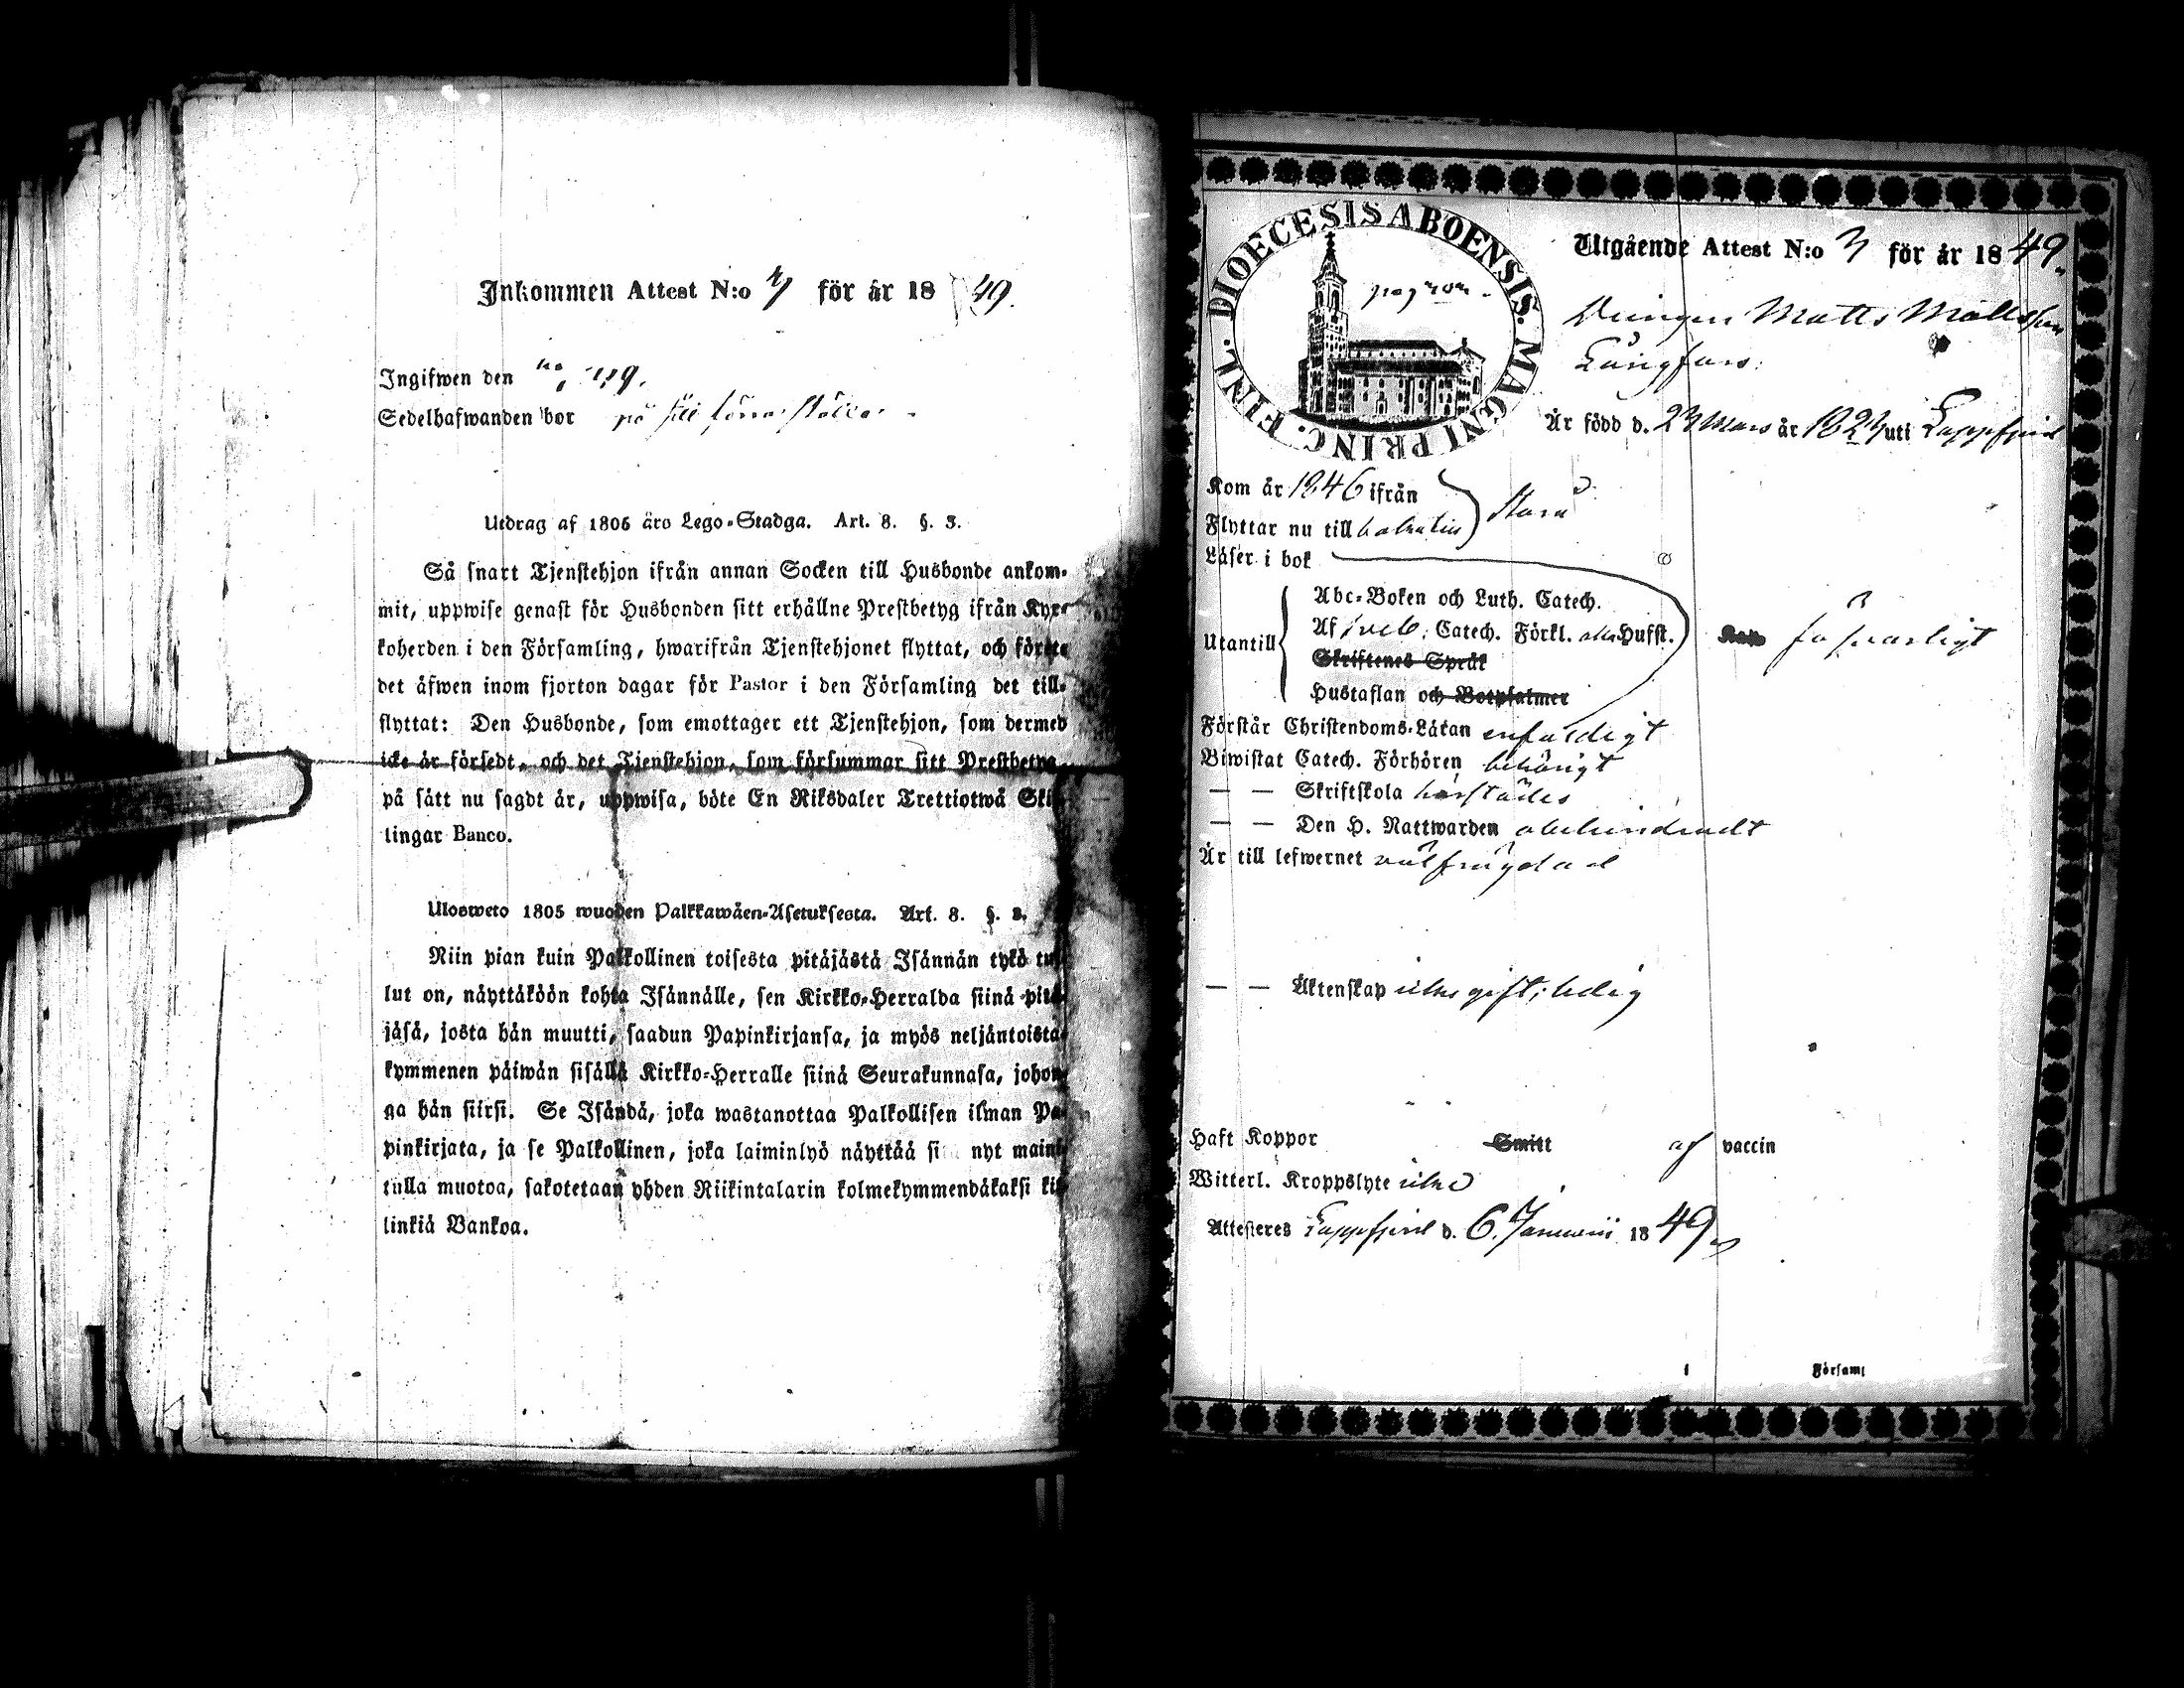 Inkommen Attest N:o 7 för år 1849.
Ingifwen den
Sedelhafwanden bor på
Utdrag af 1805 års Lego-Stadga. Art. 8. §. 3.
Så snart Tjenstehjon ifrån annan Socken till Husbonde ankom-
mit, uppwise genast för Husbonden sitt erhållne Prestbetyg ifrån Kyr-
koherden i den Församling, hwarifrån Tjenstehjonet flyttat, och förete
det äfwen inom fjorton dagar för Pastor i den Församling det till-
flyttat: Den Husbonde, som emottager ett Tjenstehjon, som dermed
icke är försedt, och det Tjenstehjon, som försummar sitt Prestbetyg,
på sätt nu sagdt är, uppwisa, böte En Riksdaler Trettiotwå Skil-
lingar Banco.
Ulosweto 1805 wuoden Palkkawäen-Asetuksesta. Art. 8. §. 3.
Niin pian kuin Palkollinen toisesta pitäjästä Isännän tykö tul-
lut on, näyttäköön kohta Isännälle, sen Kirkko-Herralda siinä pitä-
jäsä, josta hän muutti, saadun Papinkirjansa, ja myös neljäntoista-
kymmenen päiwän sisällä Kirkko-Herralle siinä Seurakunnasa, johon-
ga hän siirsi. Se Isändä, joka wastanottaa Palkollisen ilman Pa-
pinkirjata, ja se Palkollinen, joka laiminlyö näyttää sitä nyt maini-
tulla muotoa, sakotetaan yhden Riikintalarin kolmekymmendäkaksi kil-
linkiä Bankoa.
DIOECESIS ABOENSIS. MAGNI PRINC. FINL.
Utgående Attest N:o 3 för år 1849.
Drängen Matts Mattsson
Långfors.
Är född d. 23 Mars år 1823 uti Lappfjerd
Kom år 1846 ifrån
Flyttar nu till
Läser i bok
Utantill
Abc-Boken och Luth. Catech.
Af Catech. Förkl. Hufst.
Skriftenes Språk
Hustaflan och Botpsalmer
försvarligt
Förstår Christendoms-Läran enfaldigt
Biwistat Catech. Förhören behörigt
— — Skriftskola härstädes
— — Den H. Nattwarden obehindradt
Är till lefwernet välfrägdad
— — Äktenskap icke gift; ledig
Haft Koppor Smitt af vaccin
Witterl. Kroppslyte icke
Attesteres Lappfjerd d. 6. Januarii 1849
Församl